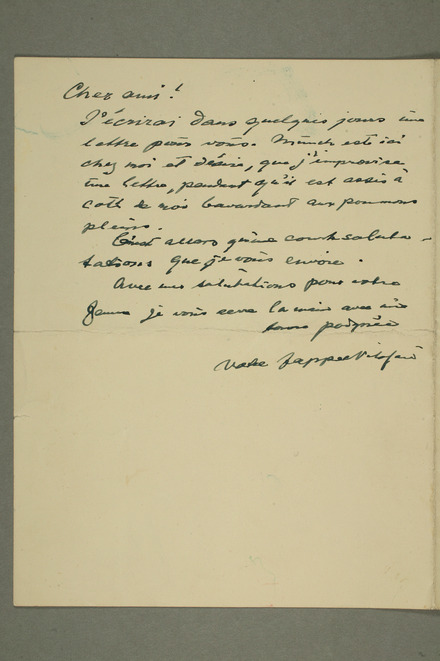 Cher ami!
J'écrirai dans quelques jours une
lettre pour vous. est ici
chez moi et désire, que j'improvise
une lettre, pendant qu'il est assis à
coté de moi bavardant aux poumons
pleins.
alors qu'une courte saluta-
tations que je vous envoie.
Avec mes salutations pour votre
je vous serre la main avec une
bonne poignée
Votre